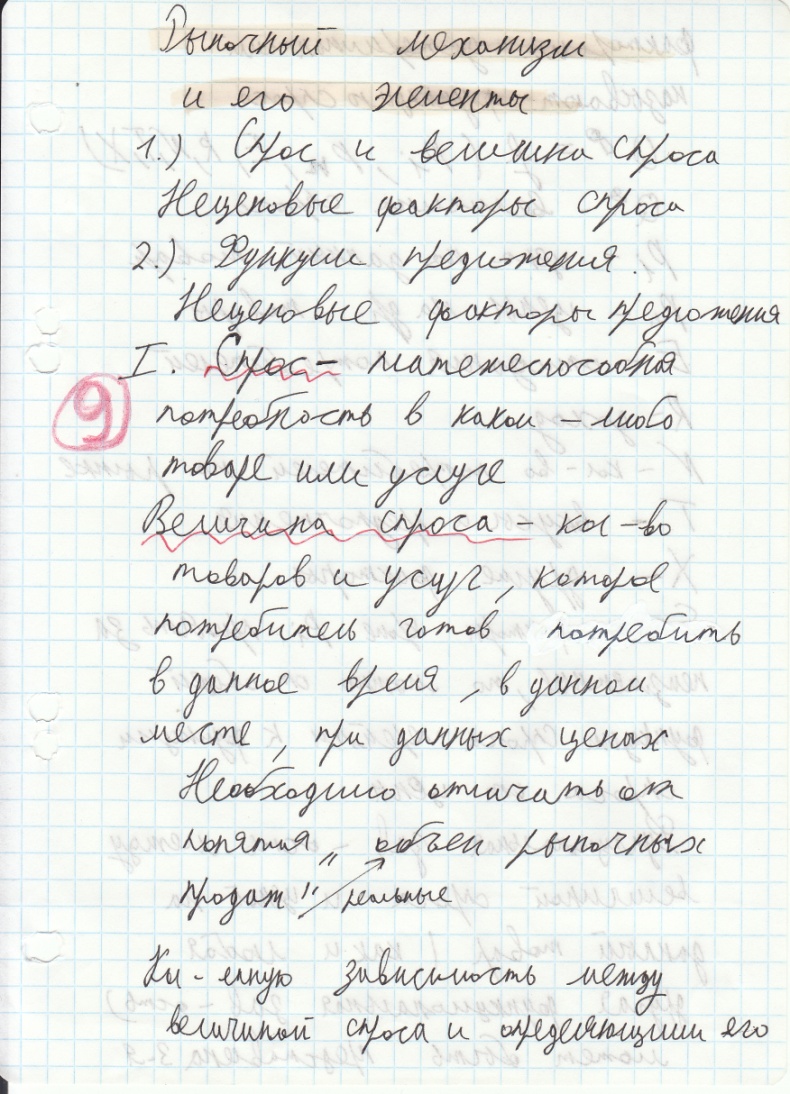 Рыночный механизм
и его элементы
1.) Спрос и величина спроса
Неценовые факторы спроса
2.) Функции предложения.
Неценовые факторы предложения
I. Спрос – платежеспособная
9
потребность в каком – либо
товаре или услуге
Величина спроса – кол-во
товаров и услуг, которое
потребитель готов потребить
в данное время, в данном
месте, при данных ценых
Необходимо отличать от
понятия „ объем рыночных
продаж" реальные
Кол-енную зависимость между
величиной спроса и определяющими его